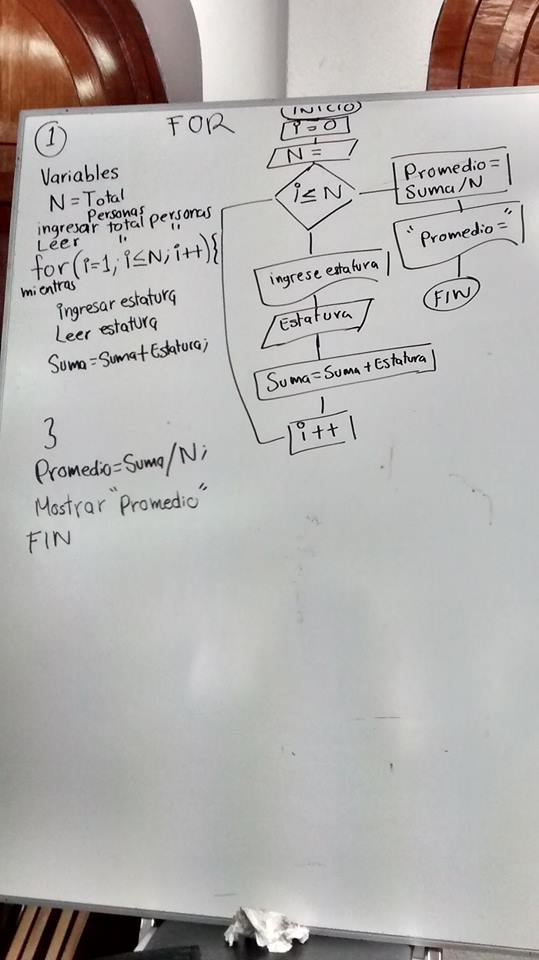 1
FOR
Variables
N = Total
Personas
ingresar total personas
Leer " "
for(i=1; i≤N; i++){
mientras
Ingresar estatura
Leer estatura
Suma=Suma+Estatura;
}
Promedio=Suma/N;
Mostrar "Promedio"
FIN
INICIO
i=0
N=
i≤N
ingrese estatura
Estatura
Suma=Suma+Estatura
i++
Promedio=
Suma/N
"Promedio="
FIN